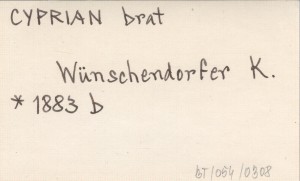 CYPRIAN brat
Wünschendorfer K.
* 1883 b
bT/054/0308